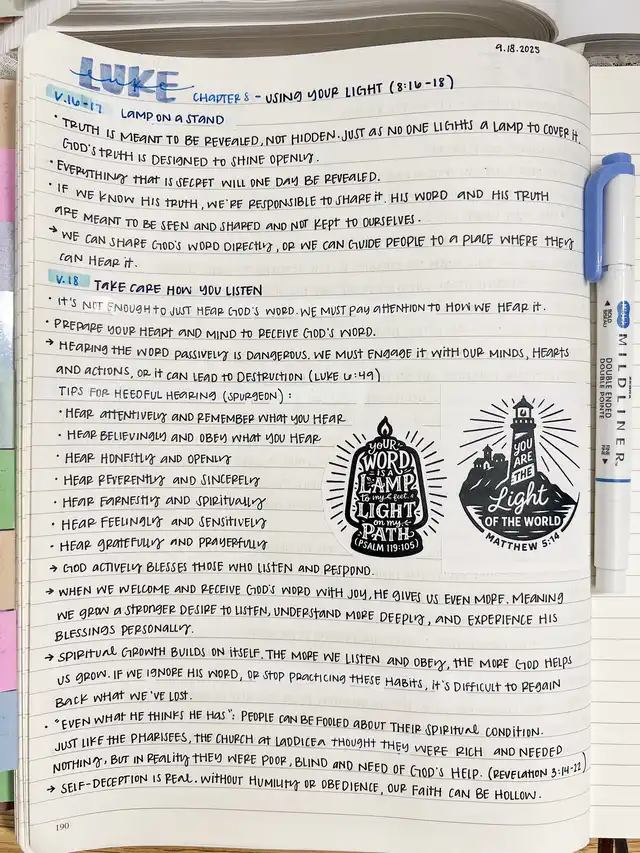 9.18.2025
LUKE
luke
CHAPTER 8 - USING YOUR LIGHT (8:16-18)
V.16-17 LAMP ON A STAND
• TRUTH IS MEANT TO BE REVEALED, NOT HIDDEN. JUST AS NO ONE LIGHTS A LAMP TO COVER IT.
GOD'S TRUTH IS DESIGNED TO SHINE OPENLY.
• EVERYTHING THAT IS SECRET WILL ONE DAY BE REVEALED.
• IF WE KNOW HIS TRUTH, WE'RE RESPONSIBLE TO SHARE IT. HIS WORD AND HIS TRUTH
ARE MEANT TO BE SEEN AND SHARED AND NOT KEPT TO OURSELVES.
→ WE CAN SHARE GOD'S WORD DIRECTLY, OR WE CAN GUIDE PEOPLE TO A PLACE WHERE THEY
CAN HEAR IT.
V.18 TAKE CARE HOW YOU LISTEN
• IT'S NOT ENOUGH TO JUST HEAR GOD'S WORD. WE MUST PAY ATTENTION TO HOW WE HEAR IT.
• PREPARE YOUR HEART AND MIND TO RECEIVE GOD'S WORD.
→ HEARING THE WORD PASSIVELY IS DANGEROUS. WE MUST ENGAGE IT WITH OUR MINDS, HEARTS
AND ACTIONS, OR IT CAN LEAD TO DESTRUCTION (LUKE 6:49)
TIPS FOR HEEDFUL HEARING (SPURGEON):
• HEAR ATTENTIVELY AND REMEMBER WHAT YOU HEAR
• HEAR BELIEVINGLY AND OBEY WHAT YOU HEAR
• HEAR HONESTLY AND OPENLY
• HEAR REVERENTLY AND SINCERELY
• HEAR EARNESTLY AND SPIRITUALLY
• HEAR FEELINGLY AND SENSITIVELY
• HEAR GRATEFULLY AND PRAYERFULLY
YOUR
WORD
IS A
LAMP
to my feet, a
LIGHT
on my
PATH
(PSALM 119:105)
YOU
ARE
THE
Light
OF THE WORLD
MATTHEW 5:14
→ GOD ACTIVELY BLESSES THOSE WHO LISTEN AND RESPOND.
→ WHEN WE WELCOME AND RECEIVE GOD'S WORD WITH JOY, HE GIVES US EVEN MORE. MEANING
WE GROW A STRONGER DESIRE TO LISTEN, UNDERSTAND MORE DEEPLY, AND EXPERIENCE HIS
BLESSINGS PERSONALLY.
→ SPIRITUAL GROWTH BUILDS ON ITSELF. THE MORE WE LISTEN AND OBEY, THE MORE GOD HELPS
US GROW. IF WE IGNORE HIS WORD, OR STOP PRACTICING THESE HABITS, IT'S DIFFICULT TO REGAIN
BACK WHAT WE'VE LOST.
• "EVEN WHAT HE THINKS HE HAS": PEOPLE CAN BE FOOLED ABOUT THEIR SPIRITUAL CONDITION.
JUST LIKE THE PHARISEES, THE CHURCH AT LAODICEA THOUGHT THEY WERE RICH AND NEEDED
NOTHING, BUT IN REALITY THEY WERE POOR, BLIND AND NEED OF GOD'S HELP. (REVELATION 3:14-22)
→ SELF-DECEPTION IS REAL. WITHOUT HUMILITY OR OBEDIENCE, OUR FAITH CAN BE HOLLOW.
190
MILDLINER
DOUBLE ENDED
DOUBLE POINTE